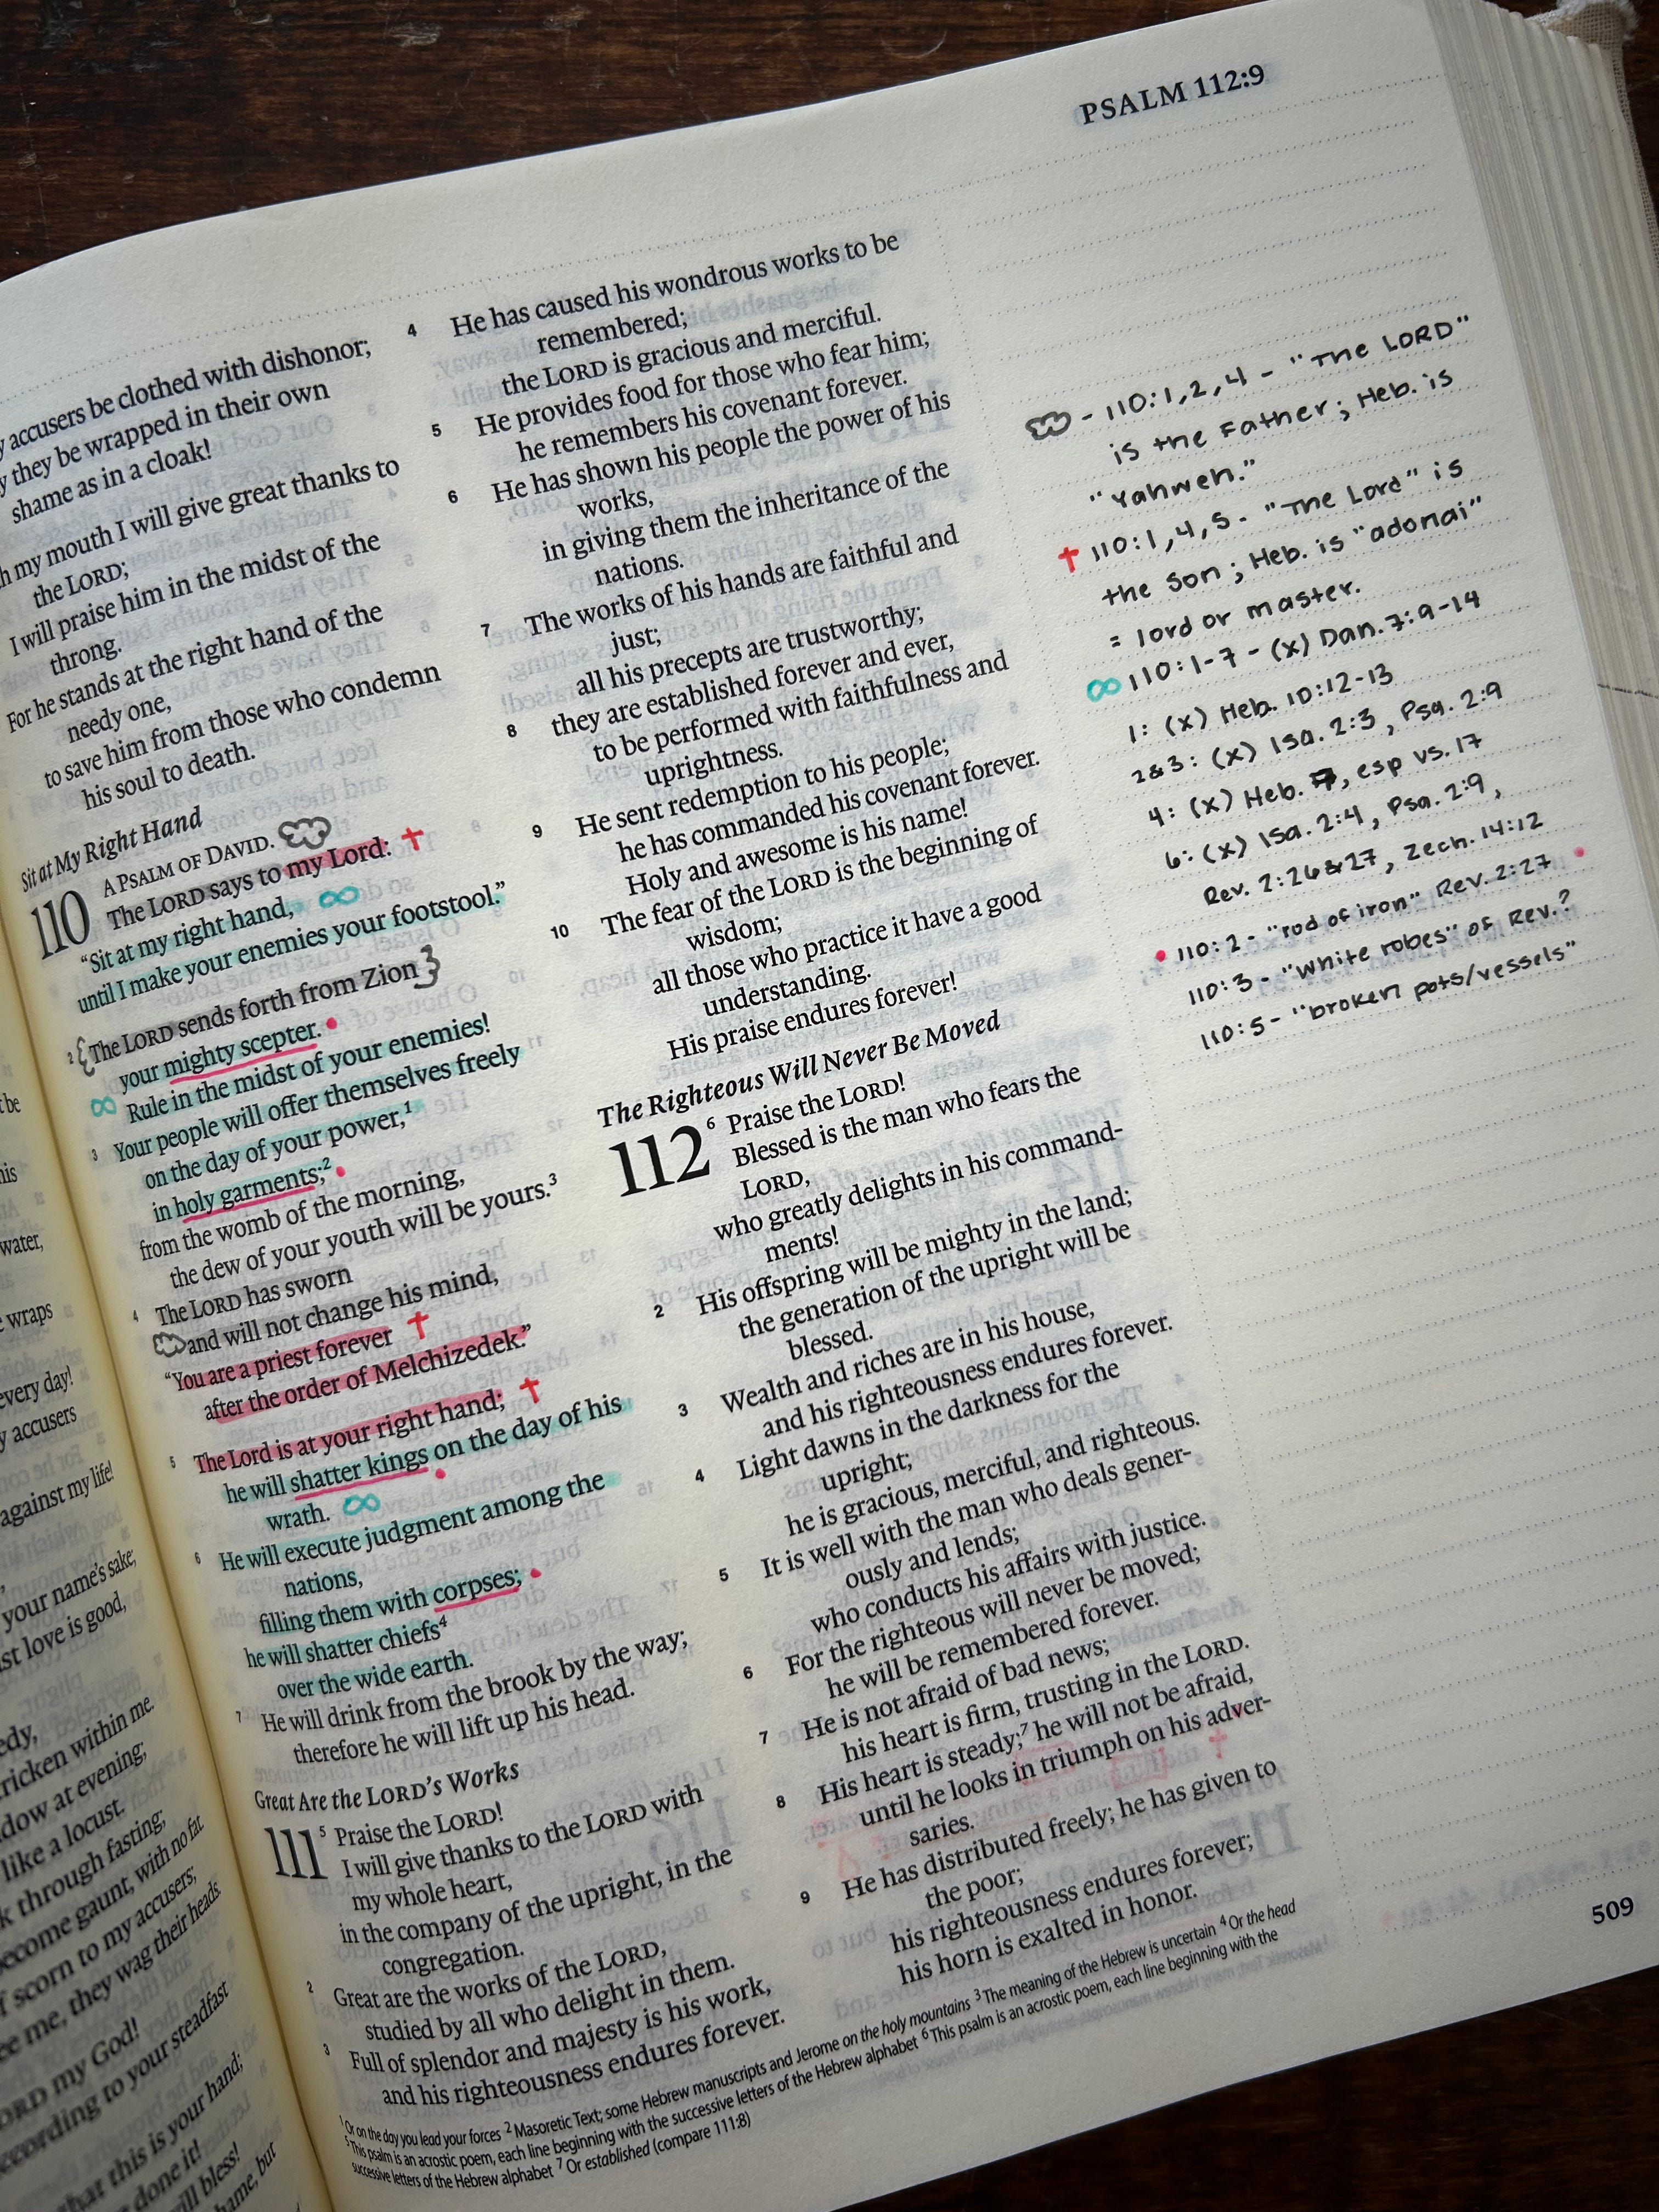 PSALM 112:9
accusers be clothed with dishonor;
they be wrapped in their own
shame as in a cloak!
my mouth I will give great thanks to
the LORD;
I will praise him in the midst of the
throng.
For he stands at the right hand of the
needy one,
to save him from those who condemn
his soul to death.
Sit at My Right Hand
110 A PSALM OF DAVID.
The LORD says to my Lord:
"Sit at my right hand,
until I make your enemies your footstool."
2 The LORD sends forth from Zion
your mighty scepter.
Rule in the midst of your enemies!
3 Your people will offer themselves freely
on the day of your power,1
in holy garments;2
from the womb of the morning,
the dew of your youth will be yours.3
4 The LORD has sworn
and will not change his mind,
"You are a priest forever
after the order of Melchizedek."
5 The Lord is at your right hand;
he will shatter kings on the day of his
wrath.
6 He will execute judgment among the
nations,
filling them with corpses;
he will shatter chiefs4
over the wide earth.
7 He will drink from the brook by the way;
therefore he will lift up his head.
Great Are the LORD's Works
111 5 Praise the LORD!
I will give thanks to the LORD with
my whole heart,
in the company of the upright, in the
congregation.
2 Great are the works of the LORD,
studied by all who delight in them.
3 Full of splendor and majesty is his work,
and his righteousness endures forever.
4 He has caused his wondrous works to be
remembered;
the LORD is gracious and merciful.
5 He provides food for those who fear him;
he remembers his covenant forever.
6 He has shown his people the power of his
works,
in giving them the inheritance of the
nations.
7 The works of his hands are faithful and
just;
all his precepts are trustworthy;
8 they are established forever and ever,
to be performed with faithfulness and
uprightness.
9 He sent redemption to his people;
he has commanded his covenant forever.
Holy and awesome is his name!
10 The fear of the LORD is the beginning of
wisdom;
all those who practice it have a good
understanding.
His praise endures forever!
The Righteous Will Never Be Moved
112 6 Praise the LORD!
Blessed is the man who fears the
LORD,
who greatly delights in his command-
ments!
2 His offspring will be mighty in the land;
the generation of the upright will be
blessed.
3 Wealth and riches are in his house,
and his righteousness endures forever.
4 Light dawns in the darkness for the
upright;
he is gracious, merciful, and righteous.
5 It is well with the man who deals gener-
ously and lends;
who conducts his affairs with justice.
6 For the righteous will never be moved;
he will be remembered forever.
7 He is not afraid of bad news;
his heart is firm, trusting in the LORD.
8 His heart is steady;7 he will not be afraid,
until he looks in triumph on his adver-
saries.
9 He has distributed freely; he has given to
the poor;
his righteousness endures forever;
his horn is exalted in honor.
1 Or on the day you lead your forces 2 Masoretic Text; some Hebrew manuscripts and Jerome on the holy mountains 3 The meaning of the Hebrew is uncertain 4 Or the head
5 This psalm is an acrostic poem, each line beginning with the successive letters of the Hebrew alphabet 6 This psalm is an acrostic poem, each line beginning with the
successive letters of the Hebrew alphabet 7 Or established (compare 111:8)
- 110:1,2,4 - "The LORD"
is the Father; Heb. is
"Yahweh."
✝ 110:1,4,5 - "The Lord" is
the Son; Heb. is "adonai"
= lord or master.
∞ 110:1-7 - (x) Dan. 7:9-14
1: (x) Heb. 10:12-13
2&3: (x) Isa. 2:3, Psa. 2:9
4: (x) Heb. 7, esp vs. 17
6: (x) Isa. 2:4, Psa. 2:9,
Rev. 2:26&27, Zech. 14:12
• 110:2 - "rod of iron" Rev. 2:27 •
110:3 - "White robes" of Rev.?
110:5 - "broken pots/vessels"
509
be
his
water,
wraps
every day!
accusers
against my life!
your name's sake;
love is good,
stricken within me.
at evening;
like a locust.
through fasting;
become gaunt, with no fat.
of scorn to my accusers;
me, they wag their heads.
LORD my God!
according to your steadfast
that this is your hand;
done it!
will bless!
but